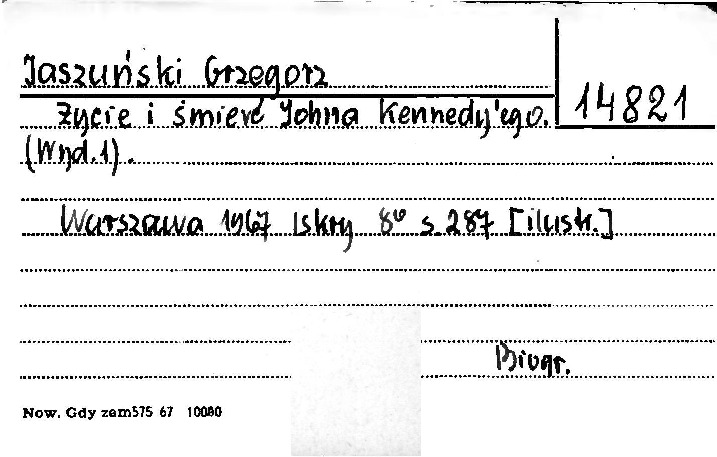 Jaszuński Grzegorz
14821
Życie i śmierć Johna Kennedy'ego.
(Wyd.1).
Warszawa 1967 Iskry 8° s.287 [ilustr.]
Biogr.
Now. Gdy zam575 67 10080